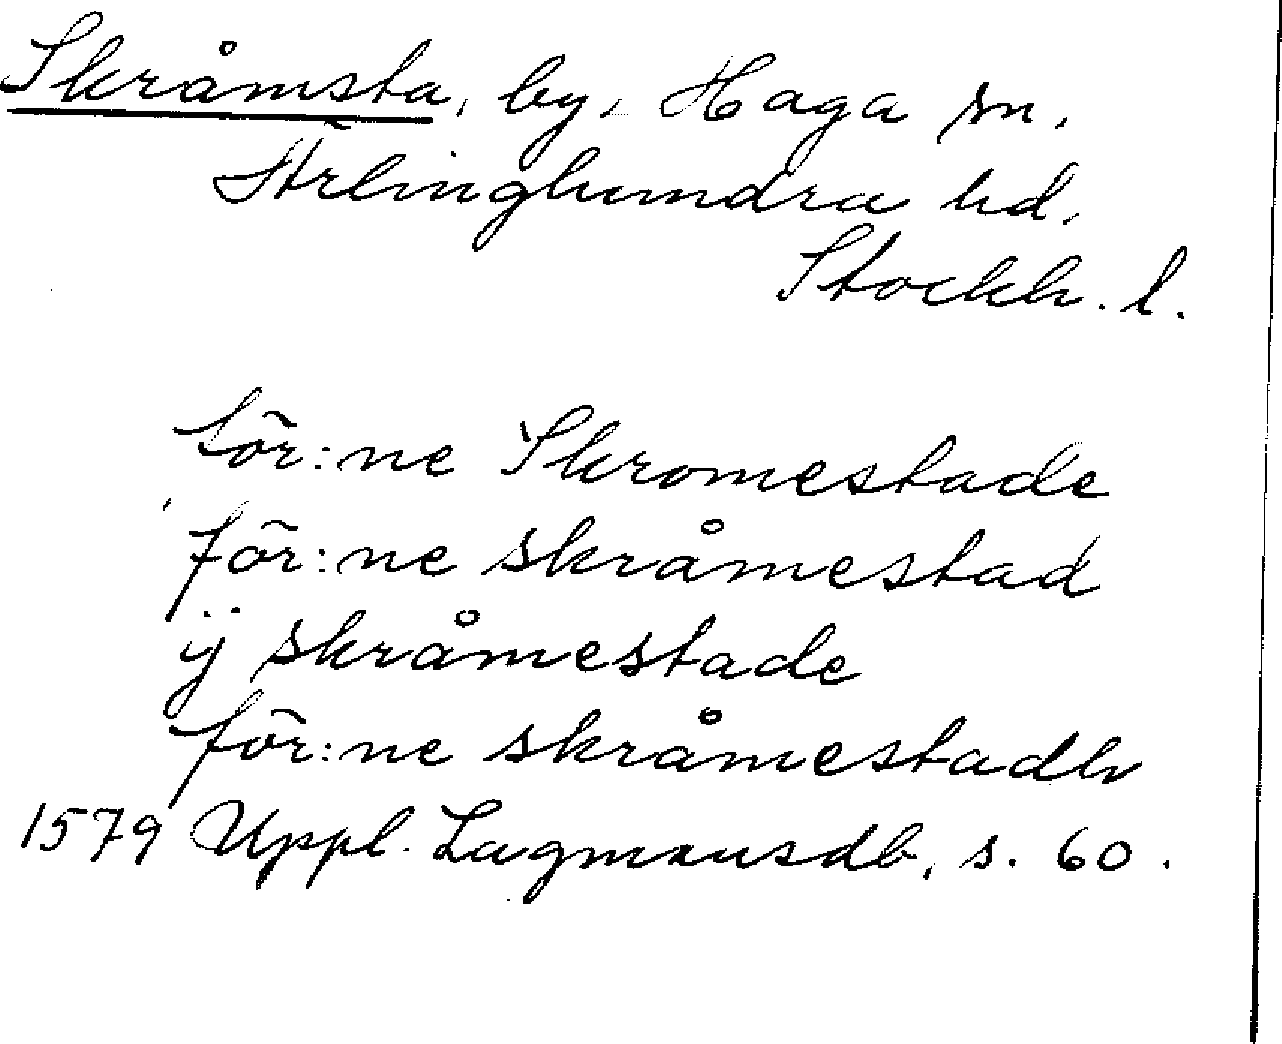 Skråmsta, by, Haga sn.
Ärlinghundra hd.
Stockh. l.
för:ne Skromestade
för:ne skråmestad
ÿ skråmestade
för:ne skråmestadh
1579 Uppl. Lagmansdb, s. 60.